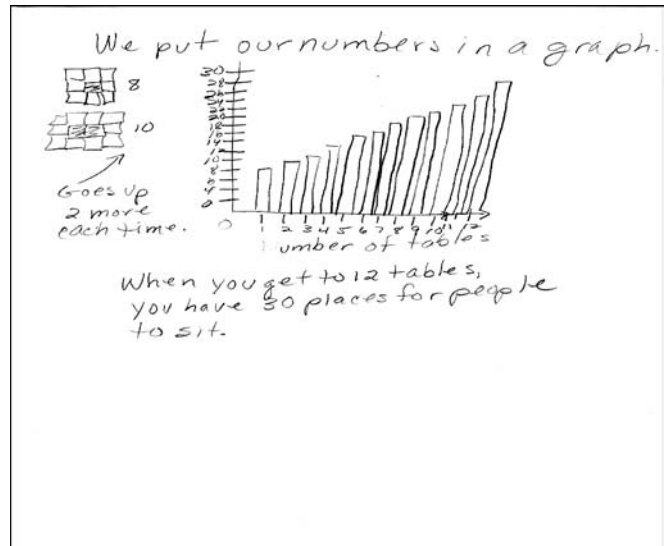 We put our numbers in a graph.
8
10
Goes up
2 more
each time.
30
28
26
24
22
20
18
16
14
12
10
8
6
4
0
0
1 2 3 4 5 6 7 8 9 10 11 12
umber of tables
When you get to 12 tables,
you have 30 places for people
to sit.